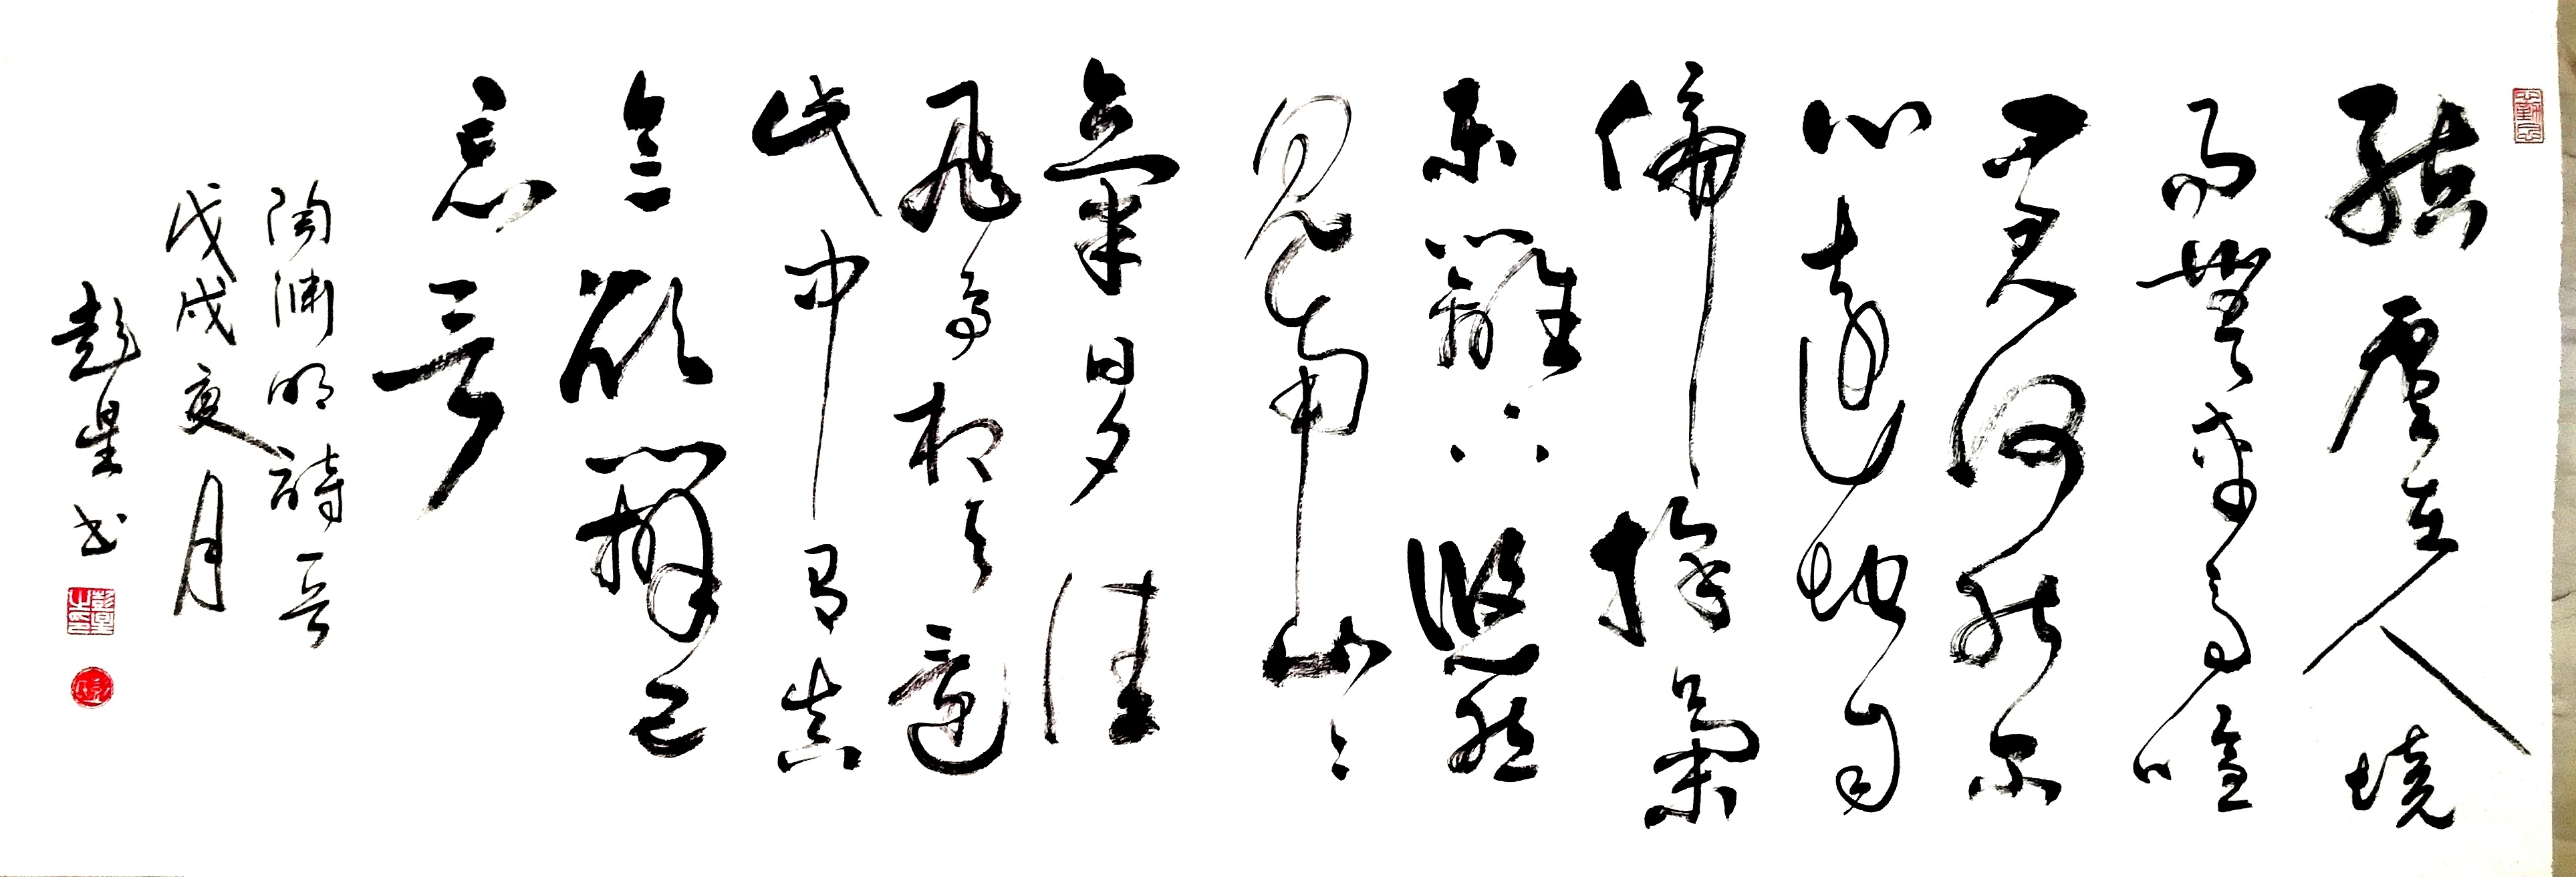 結廬在人境
而無車馬喧
問君何能爾
心遠地自
偏採菊
東籬下悠然
見南山〻
氣日夕佳
飛鳥相與還
此中有真
意欲辨已
忘言
陶渊明詩一首
戊戌夏月
彭星书